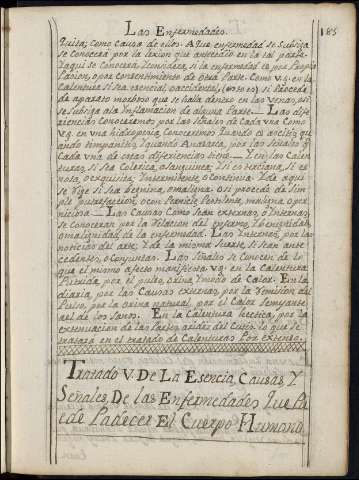 Las Enfermedades. 185
Quita, como causa de ellos. A que enfermedad se subsiga
se conocera por la lexion que antecedio en la tal parte.
Y aqui se conocerá, y considera, si la enfermedad es por Propia
Pacion, o por consentimiento de otra Parte. Como v.g. en la
Calentura si es a esencial, o accidental, (esto es) si Procede
de aparato morboso que se halla dentro en las venas, o si
se subsiga a la Inflamacion de alguna Parte. — Las dife
rencias Conoceremos por las señales de Cada vna Como
v.g. en vna hidropecia, Conoceremos quando es ascitis, qu
ando timpanitis, y quando Anasarca, por las señales q
Cada vna de estas diferiencias tiene. — Y en las Calen
turas, si sea Colerica, o sanguinea, y si es terciana, si es
nota, o exquicita, Intermitente, o Continua. Y de aqui
se sige si sea begnina, o maligna. O si procede de sim
ple putrefaccion, o con Pernicie Pestilente, maligna, o per
niciosa. — Las Causas Como sean externas, o Internas,
se conoceran por la Relacion del enfermo, y begnidad,
o malignidad de la enfermedad. Las Internas, por las
noticias del arte; y de la misma suerte, si sean ante
cedentes, o Conjuntas. Las Señales se Conocen de lo
que el mismo afecto manifiesta. v.g. en la Calentura
Putrida, por el pulso, orina, y modo de Calor. En la
diaria, por las Causas externas, por la remision del
Pulso, por la orina natural, por el Calor semejante
ael de los Sanos. En la Calentura hectica, por la
extenuacion de las Partes, arides del Cutis. lo que se
tratara en el tratado de Calenturas Por extenso.
Tratado V. De La Esencia, Causas, Y
Señales, De las Enfermedades Que Pu
ede Padecer El Cuerpo Humano